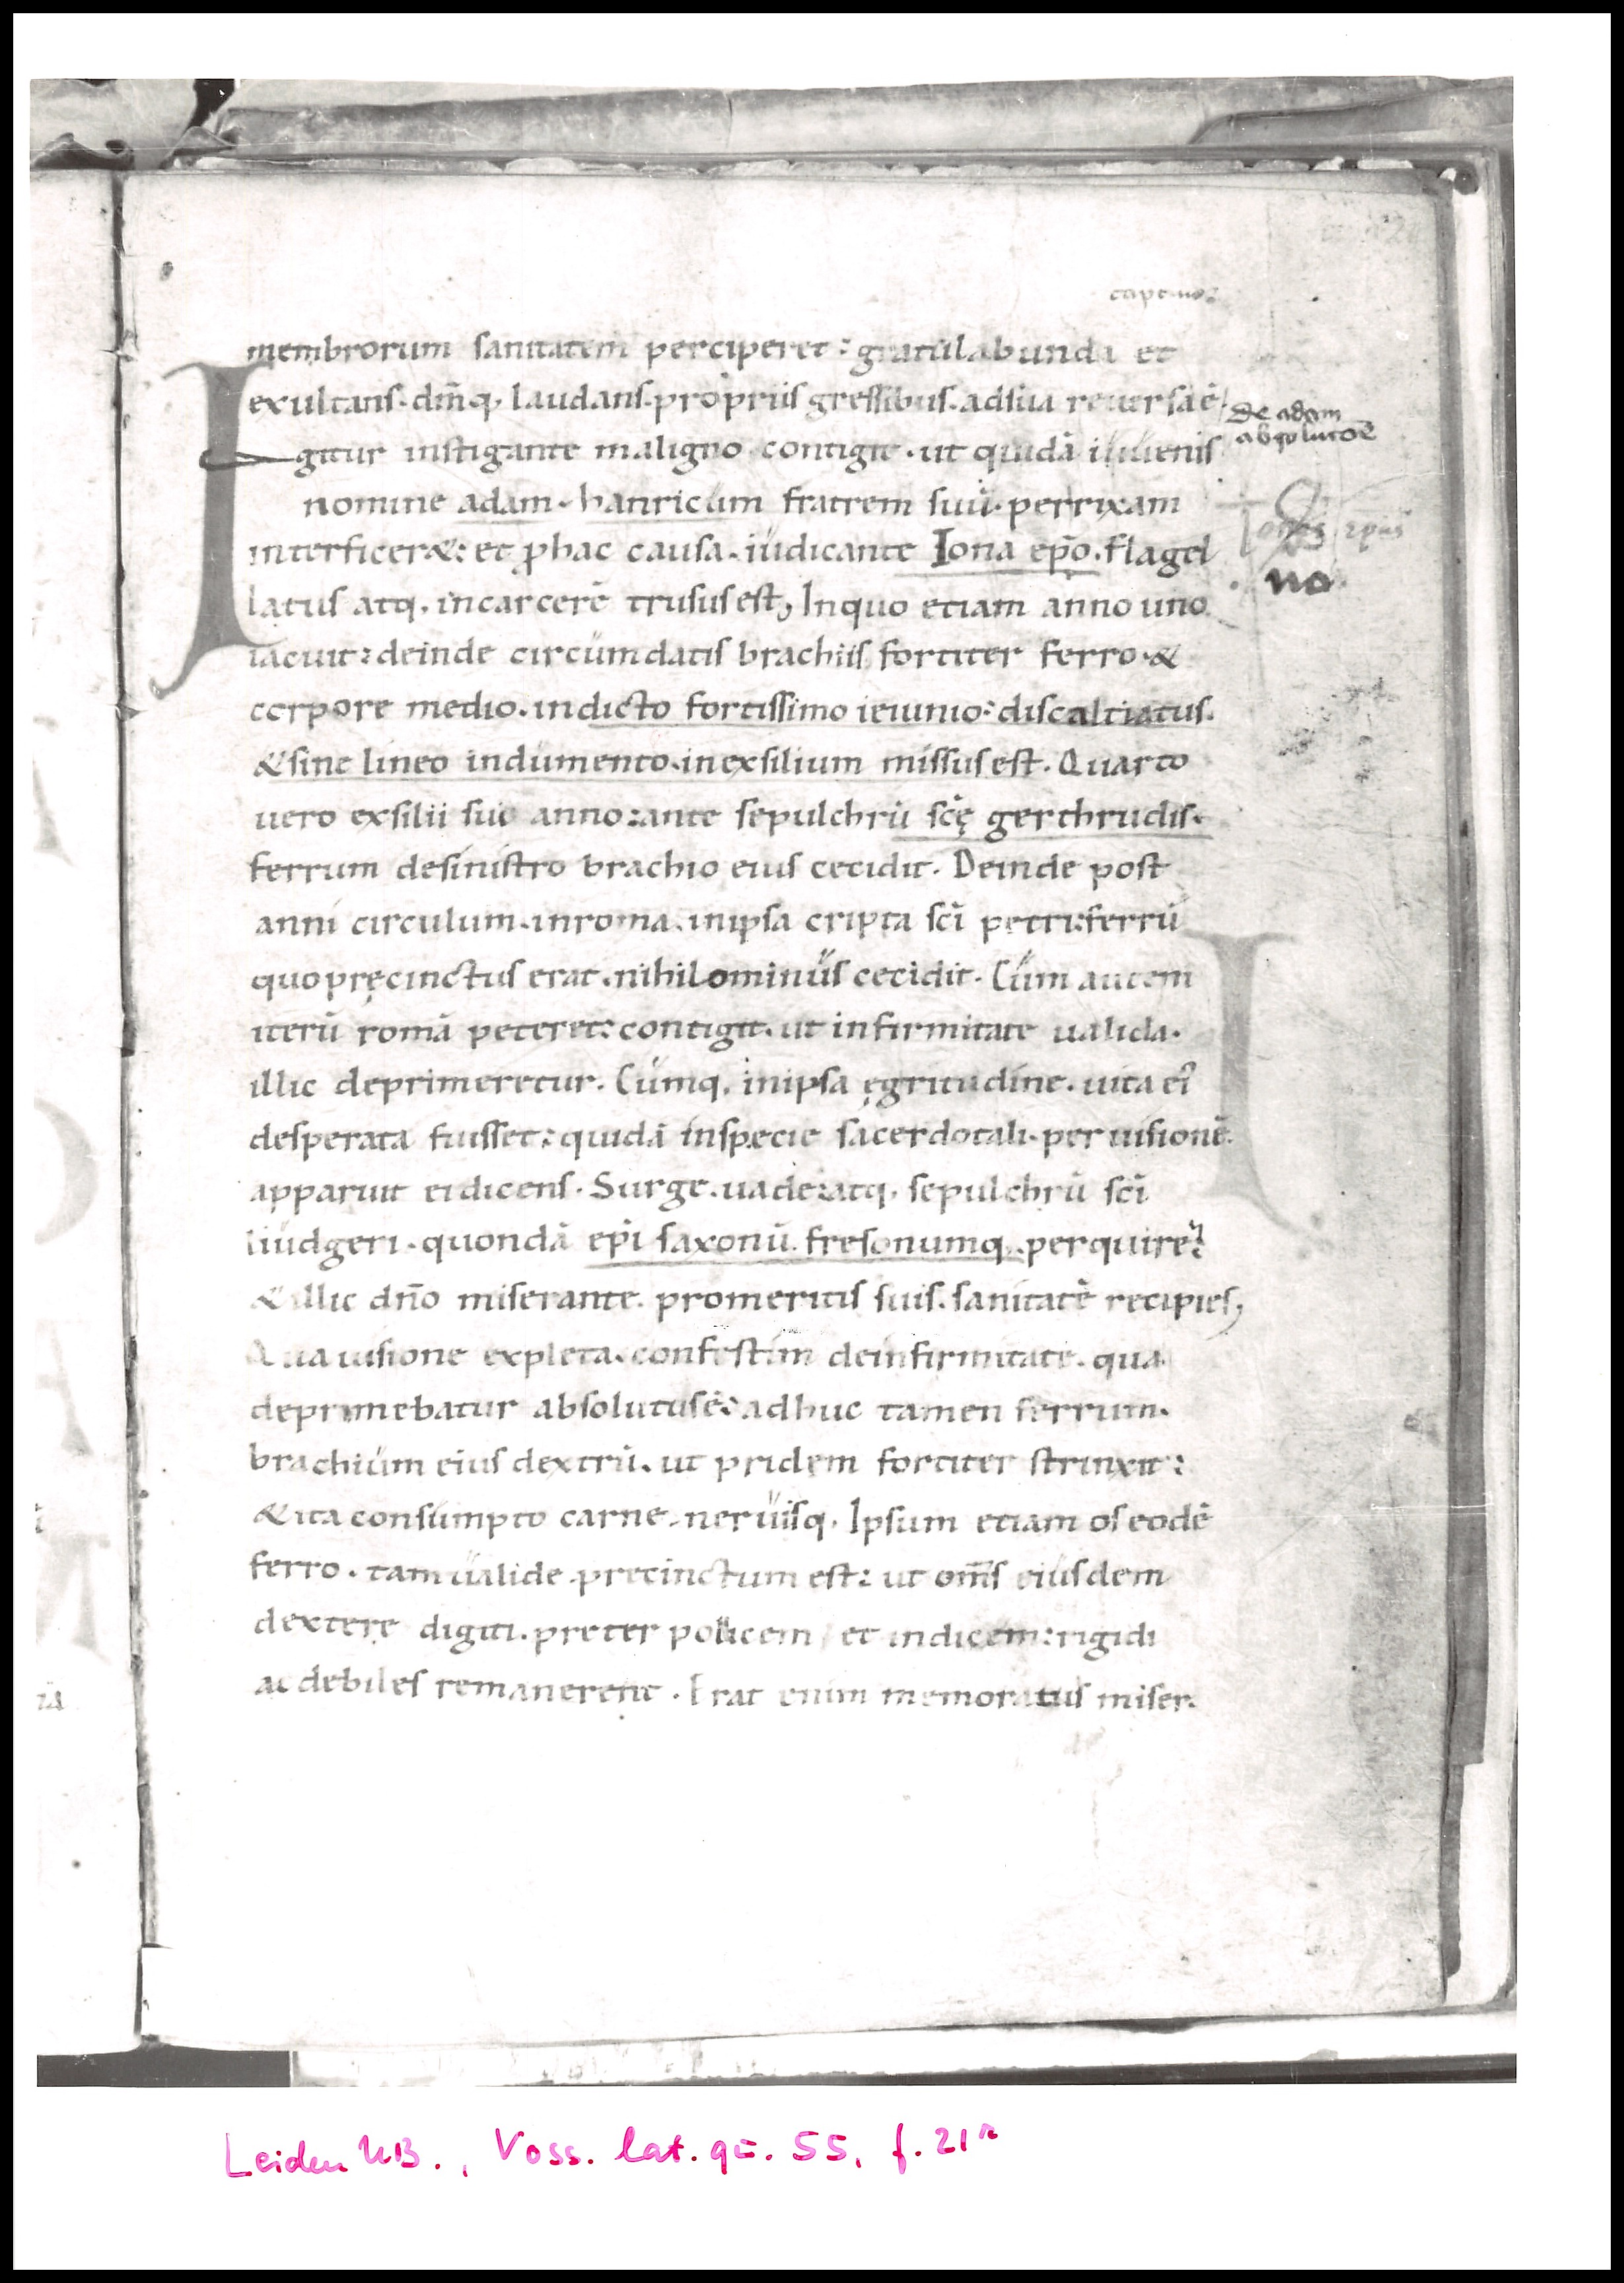 membrorum sanitatem perciperet: gratulabunda et
exultans. dm̄q. laudans. propriis gressibus. ad sua reuersa ē.
De adam
absolutoē
Igitur instigante maligno contigit. ut quidā iuuenis
nomine adam. hanricum fratrem suū. per rixam
interficer&: et ꝓ hac causa. iudicante Iona ep̄o. flagel
no
latus atq. in carcerē trusus est, In quo etiam anno uno
iacuit: deinde circumdatis brachiis fortiter ferro. &
corpore medio. indicto fortissimo ieiunio: discaltiatus.
& sine lineo indumento. in exsilium missus est. Quarto
uero exsilii sui anno: ante sepulchrū scę̄ gerthrudis.
ferrum de sinistro brachio eius cecidit. Deinde post
anni circulum. in roma. in ipsa cripta scī petri: ferrū
quo pręcinctus erat. nihilominus cecidit. Cum autem
iterū romā peteret: contigit. ut infirmitate ualida.
illic deprimeretur. Cumq. in ipsa ęgritudine. uita ei᾽
desperata fuisset: quidā in specie sacerdotali. per uisionē.
apparuit ei dicens. Surge. uade: atq. sepulchrū scī
liudgeri. quondā ep̄i saxonū. fresonumq. perquire:
& illic dn̄o miserante. pro meritis suis. sanitatē recipies,
Qua uisione expleta. confestim de infirmitate. qua
deprimebatur absolutus ē: adhuc tamen ferrum.
brachium eius dextrū. ut pridem fortiter strinxit:
& ita consumpto carne. neruisq. Ipsum etiam os eodē
ferro. tam ualide precinctum est: ut om̄s eiusdem
dextere digiti. preter pollicem et indicem: rigidi
ac debiles remanerent. Erat enim memoratus miser.
Leiden UB., Voss. lat. qu. 55, f. 21r